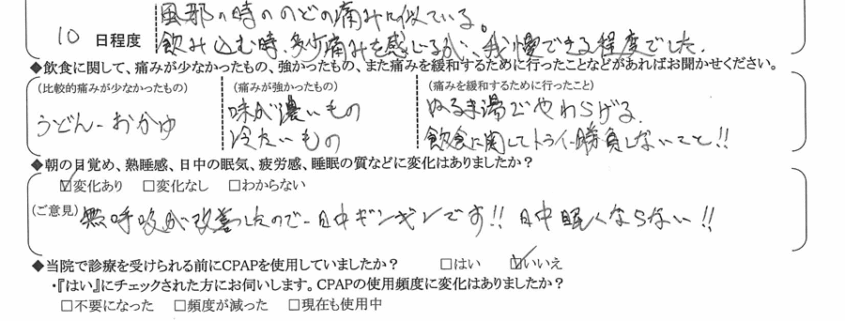 風邪の時ののどの痛みに似ている。
10 日程度
飲み込む時、多少痛みを感じるが、我慢できる程度でした。
◆飲食に関して、痛みが少なかったもの、強かったもの、また痛みを緩和するために行ったことなどがあればお聞かせください。
(比較的痛みが少なかったもの)
うどん－おかゆ
(痛みが強かったもの)
味が濃いもの
冷たいもの
(痛みを緩和するために行ったこと)
ぬるま湯でやわらげる.
飲食に関してトライ－勝負しないこと!!
◆朝の目覚め、熟睡感、日中の眠気、疲労感、睡眠の質などに変化はありましたか？
☑変化あり □変化なし □わからない
(ご意見) 無呼吸が改善したので－日中ギンギンです!! 日中眠くならない!!
◆当院で診療を受けられる前にCPAPを使用していましたか？ □はい ☑いいえ
・『はい』にチェックされた方にお伺いします。CPAPの使用頻度に変化はありましたか？
□不要になった □頻度が減った □現在も使用中